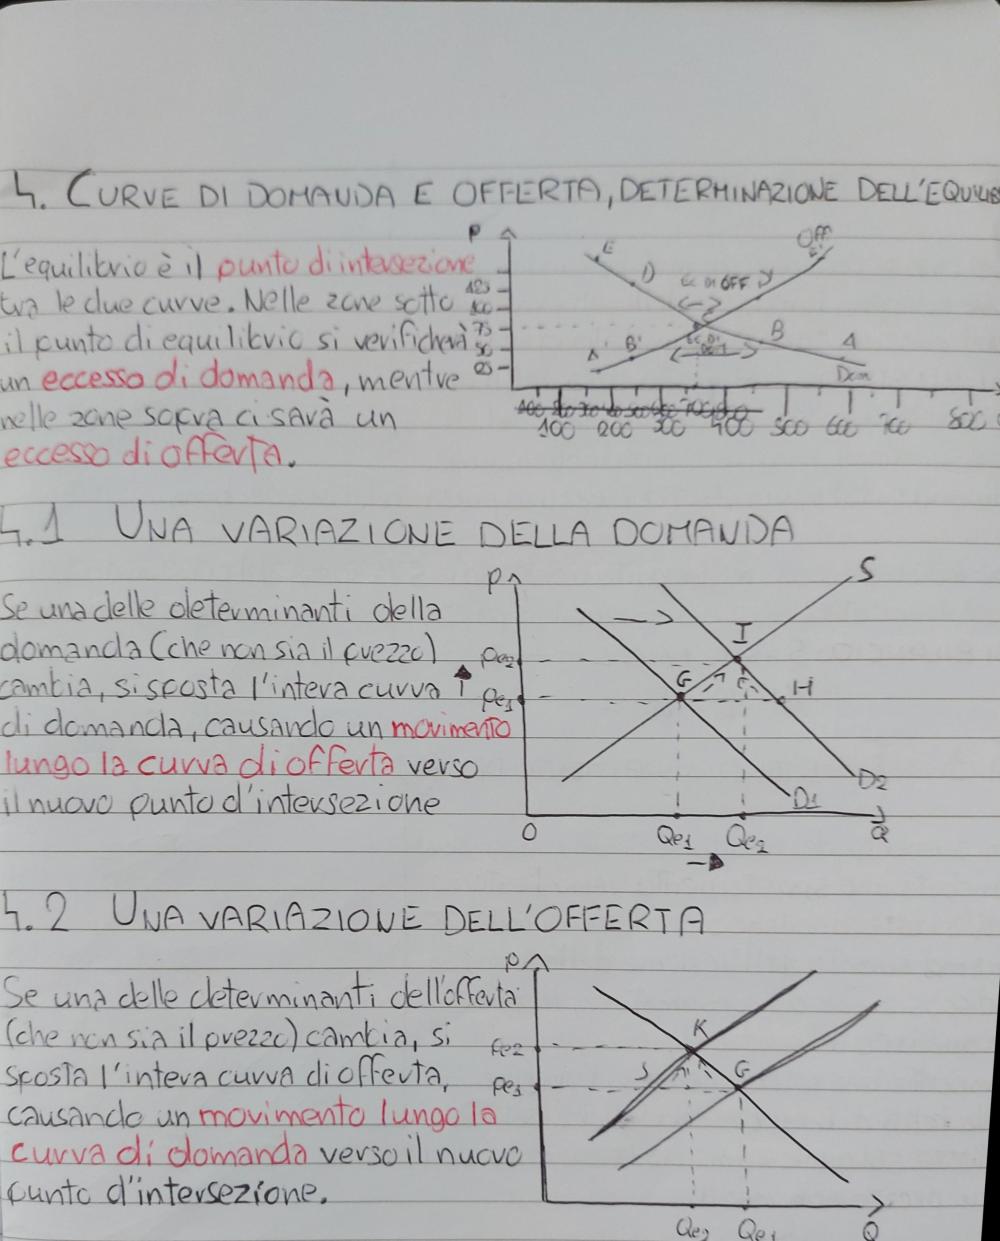 4. CURVE DI DOMANDA E OFFERTA, DETERMINAZIONE DELL'EQUILIB
L'equilibrio è il punto di intersezione
tra le due curve. Nelle zone sotto
il punto di equilibrio si verificherà
un eccesso di domanda, mentre
nelle zone sopra ci sarà un
eccesso di offerta.
P
E
D
Off
OFF
B
A
A'
B'
Dom
125
100
75
50
25
100 200 300 400 500 600 700 800
4.1 UNA VARIAZIONE DELLA DOMANDA
Se una delle determinanti della
domanda (che non sia il prezzo)
cambia, si sposta l'intera curva
di domanda, causando un movimento
lungo la curva di offerta verso
il nuovo punto d'intersezione
P
S
I
Pe2
G
H
Pe1
D2
D1
O
Qe1 Qe2
Q
4.2 UNA VARIAZIONE DELL'OFFERTA
Se una delle determinanti dell'offerta
(che non sia il prezzo) cambia, si
sposta l'intera curva di offerta,
causando un movimento lungo la
curva di domanda verso il nuovo
punto d'intersezione.
P
K
Pe2
J
G
Pe1
Qe2 Qe1
Q